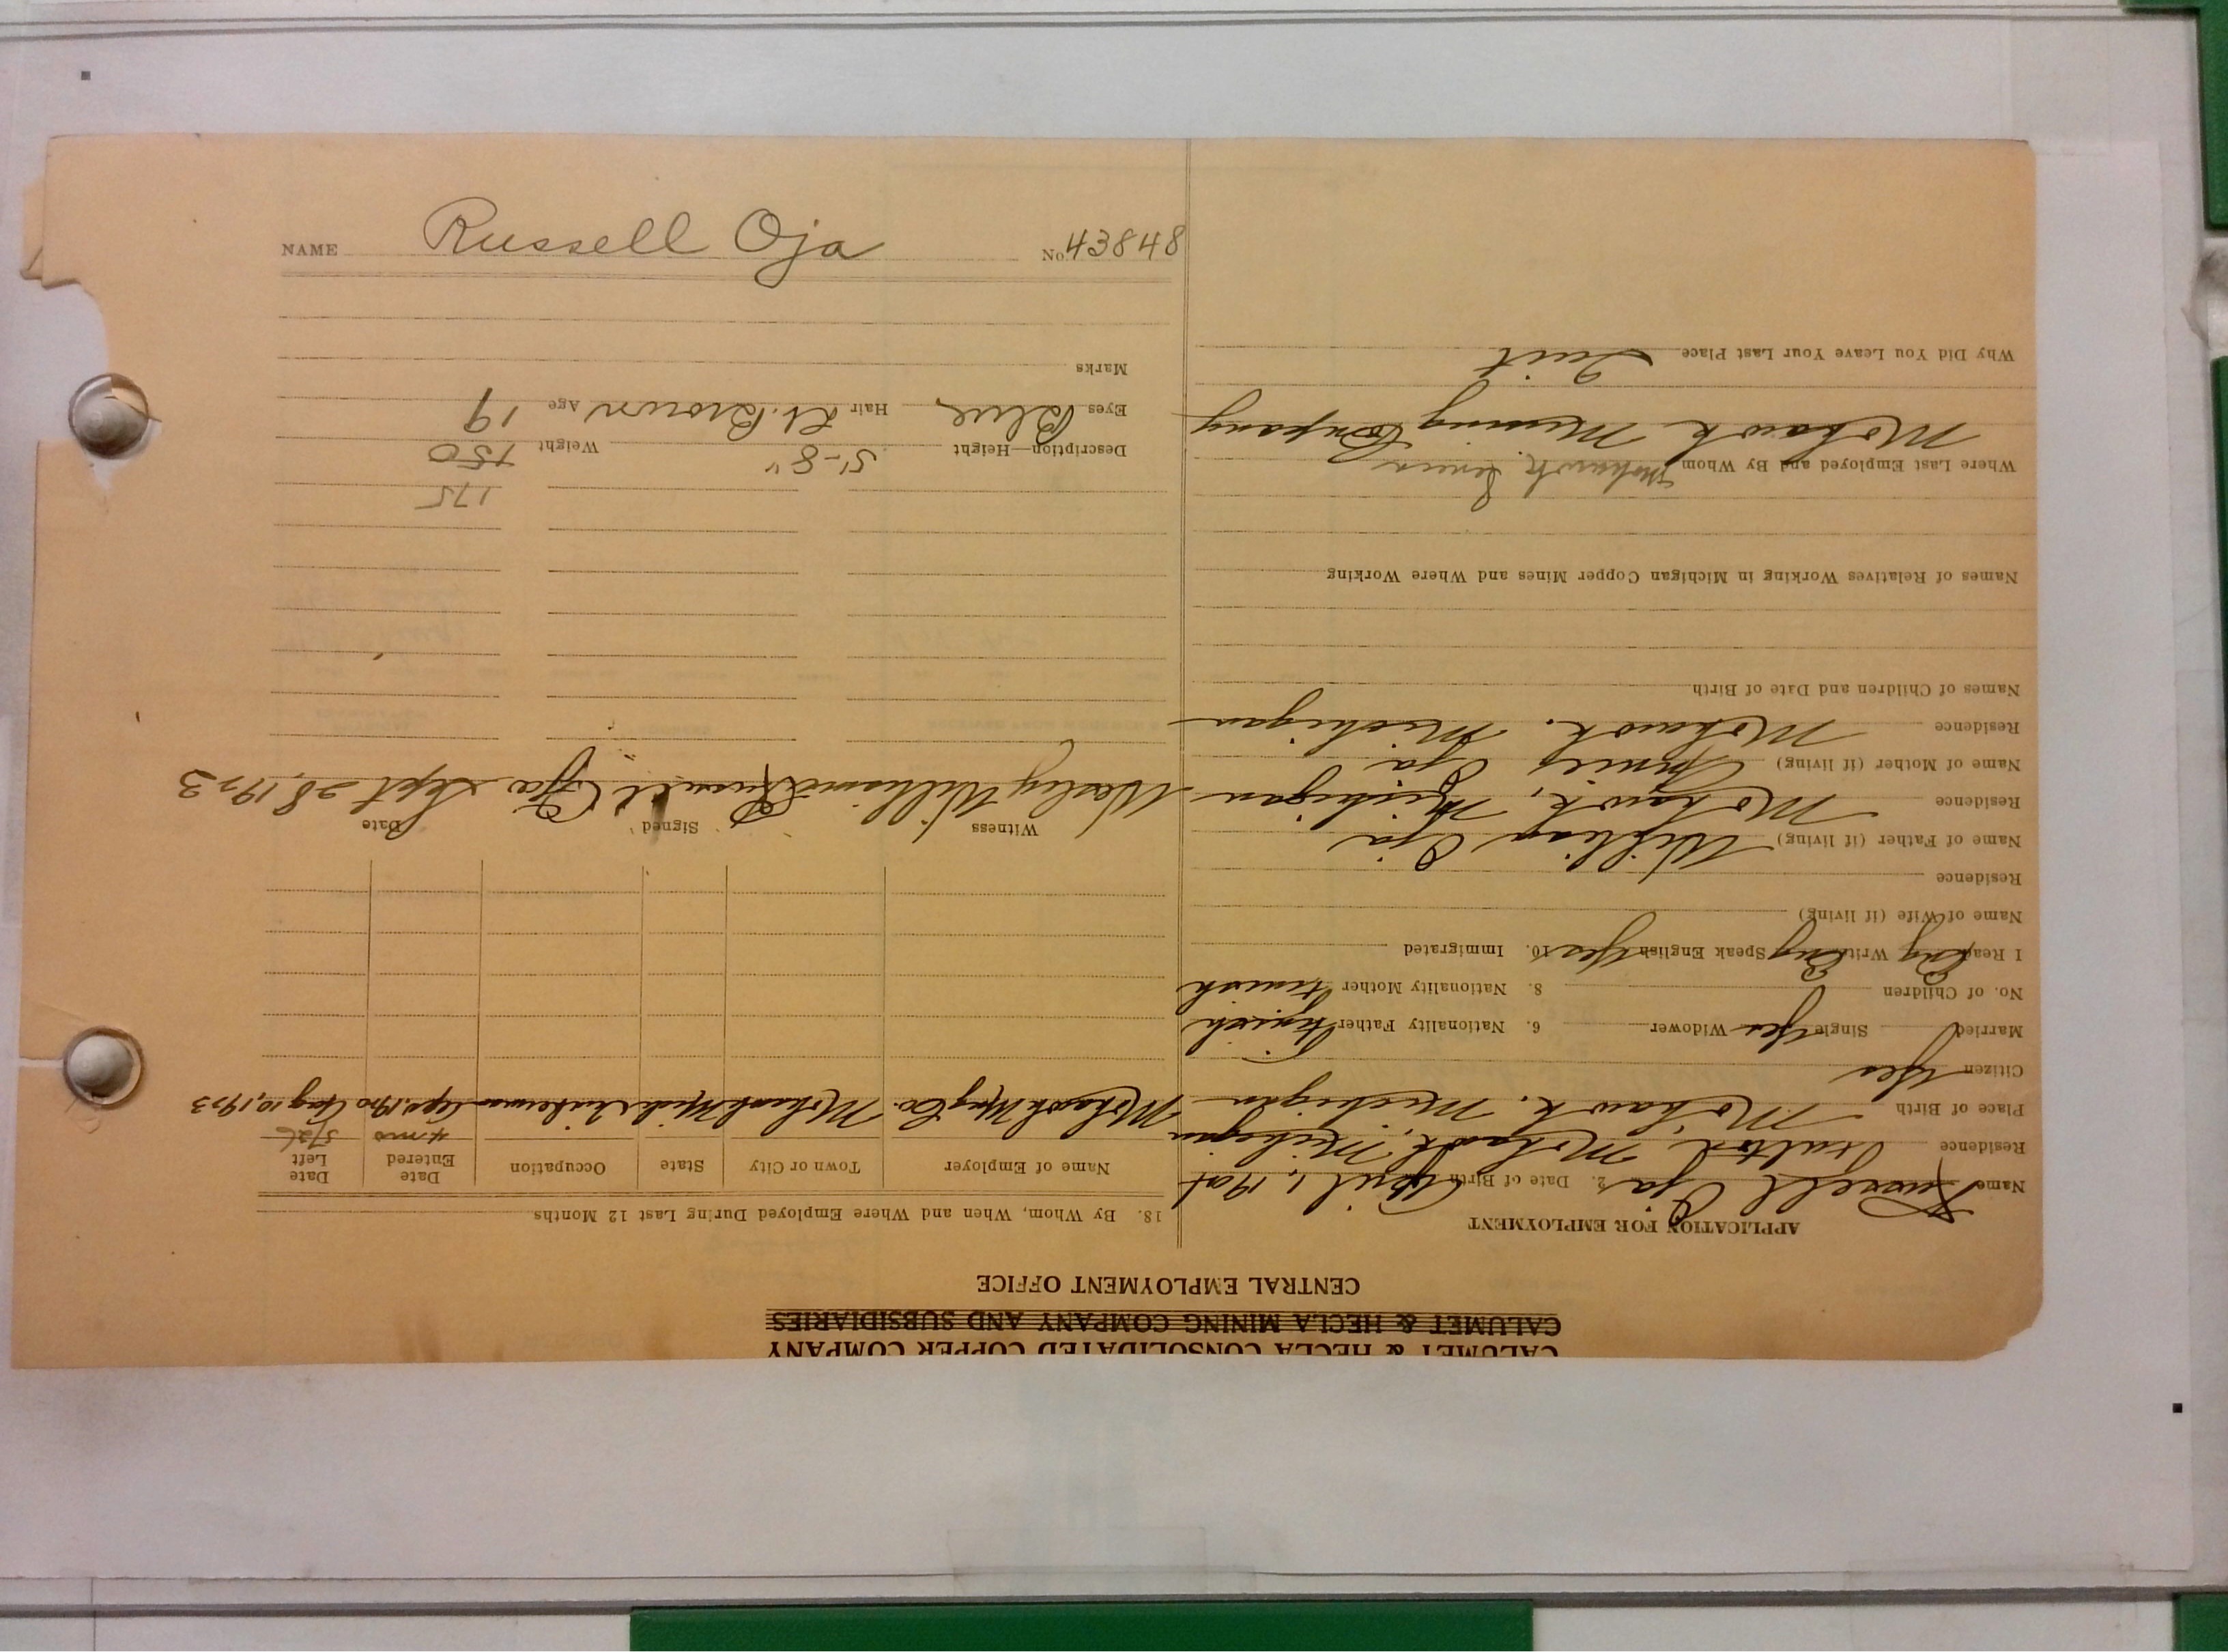 NAME Russell Oja No. 43848
CALUMET & HECLA CONSOLIDATED COPPER COMPANY
CALUMET & HECLA MINING COMPANY AND SUBSIDIARIES
CENTRAL EMPLOYMENT OFFICE
APPLICATION FOR EMPLOYMENT
Name Russell Oja 2. Date of Birth April 1, 1904
Residence Mohawk, Michigan
Place of Birth Mohawk, Michigan
Citizen Yes
Married Single Yes Widower 6. Nationality Father Finnish
No. of Children 8. Nationality Mother Finnish
I Read Eng Write Eng Speak English Yes 10. Immigrated
Name of Wife (if living)
Residence
Name of Father (if living) William Oja
Residence Mohawk, Michigan
Name of Mother (if living) Oja
Residence Mohawk, Michigan
Names of Children and Date of Birth
Names of Relatives Working in Michigan Copper Mines and Where Working
Where Last Employed and By Whom Mohawk Seneca
Mohawk Mining Company
Why Did You Leave Your Last Place Quit
18. By Whom, When and Where Employed During Last 12 Months
Name of Employer Town or City State Occupation Date Entered Date Left
4 mos 5/26
Mohawk Mng Co. Mohawk Mich Sept. 1920 Aug 10, 1923
Witness Signed Date
Wesley Williams Russell Oja Sept 28, 1923
175
Description—Height 5'-8" Weight 150
Eyes Blue Hair Lt. Brown Age 19
Marks